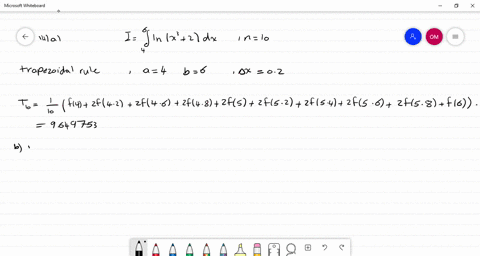 Microsoft Whiteboard
14)a) I = ∫₄⁶ ln(x³+2) dx , n=10
OM
trapezoidal rule , a=4 b=6 , Δx=0.2
T₁₀ = 1/10 (f(4)+2f(4.2)+2f(4.6)+2f(4.8)+2f(5)+2f(5.2)+2f(5.4)+2f(5.6)+2f(5.8)+f(6)).
= 9.649753
b)